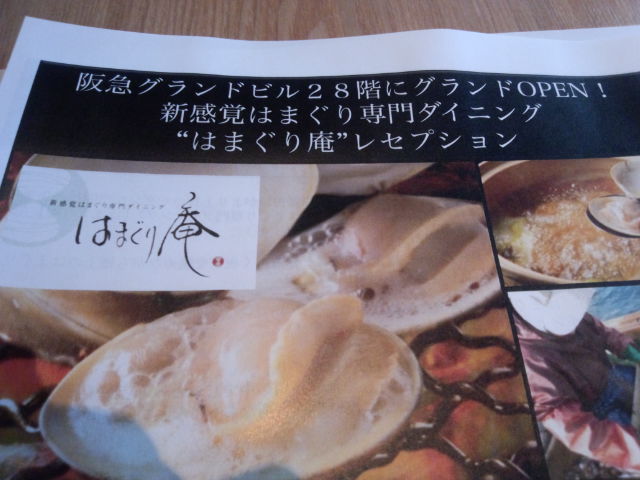 阪急グランドビル２８階にグランドOPEN！
新感覚はまぐり専門ダイニング
“はまぐり庵”レセプション
新感覚はまぐり専門ダイニング
はまぐり庵